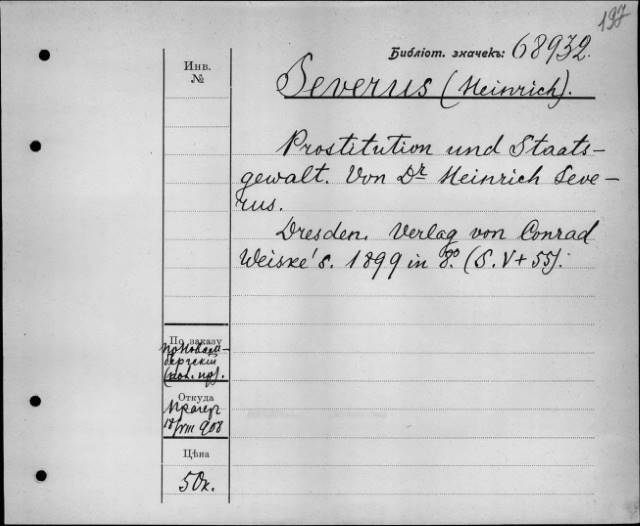 197
Библіот. значекъ: 68932.
Инв.
№
Severus (Heinrich).
Prostitution und Staats-
gewalt. Von Dr Heinrich Seve-
rus.
Dresden. Verlag von Conrad
Weiske's. 1899 in 8º. (S. V + 55).
По заказу
Откуда
18/VIII 908
Цѣна
50к.